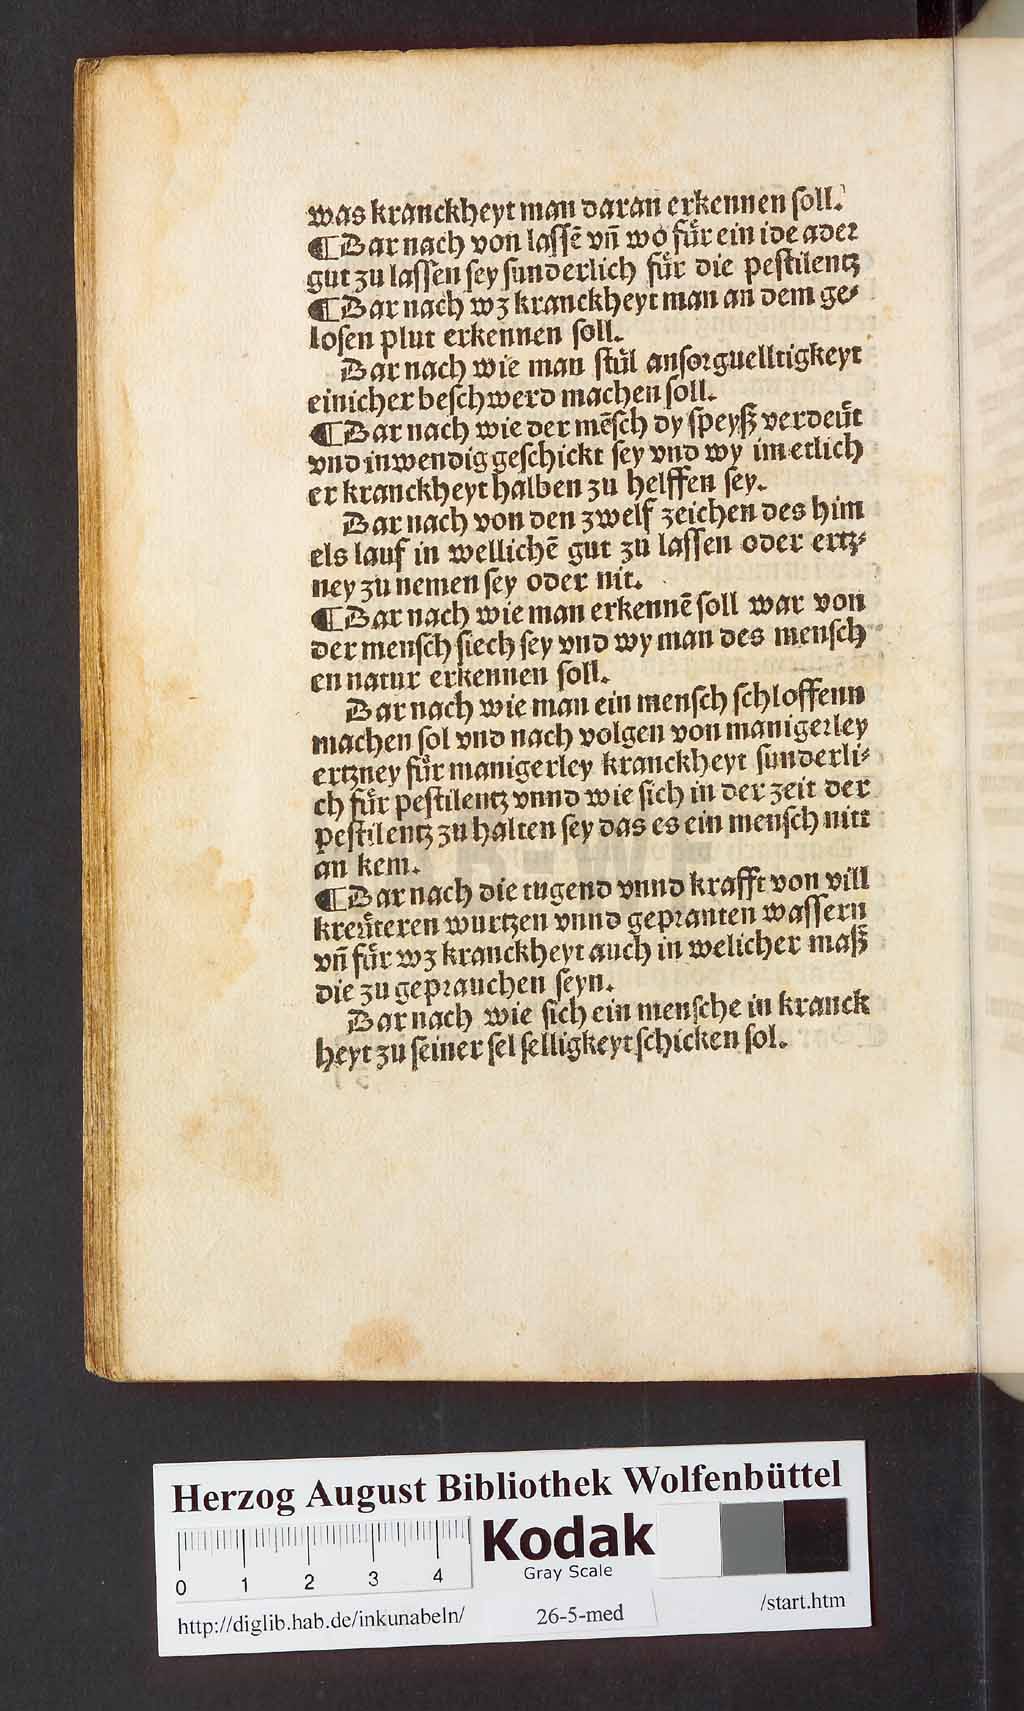 was kranckheyt man daran erkennen ſoll.
¶Darnach von laſſē vn̄ wo fuͤr ein ide ader
gut zu laſſen ſey ſunderlich fuͤr die peſtilentz
¶Darnach wz kranckheyt man an dem ge⸗
loſen plut erkennen ſoll.
Darnach wie man ſtuͤl anſorguelltigkeyt
einicher beſchwerd machen ſoll.
¶Darnach wie der mēſch dy ſpeyß verdeuͤt
vnd inwendig geſchickt ſey vnd wy im etlich
er kranckheyt halben zu helffen ſey.
Darnach von den zwelf zeichen des him
els lauf in wellichē gut zu laſſen oder ertz⸗
ney zu nemen ſey oder nit.
¶Darnach wie man erkennē ſoll war von
der menſch ſiech ſey vnd wy man des menſch
en natur erkennen ſoll.
Darnach wie man ein menſch ſchloffenn
machen ſol vnd nach volgen von manigerley
ertzney fuͤr manigerley kranckheyt ſunderli⸗
ch fuͤr peſtilentz vnnd wie ſich in der zeit der
peſtilentz zu halten ſey das es ein menſch nitt
an kem.
¶Darnach die tugend vnnd krafft von vill
kreuͤteren wurtzen vnnd gepranten waſſern
vn̄ fuͤr wz kranckheyt auch in welicher maß
die zu geprauchen ſeyn.
Darnach wie ſich ein menſche in kranck
heyt zu ſeiner ſel ſelligkeyt ſchicken ſol.
Herzog August Bibliothek Wolfenbüttel
Kodak
Gray Scale
0 1 2 3 4
http://diglib.hab.de/inkunabeln/ 26-5-med /start.htm